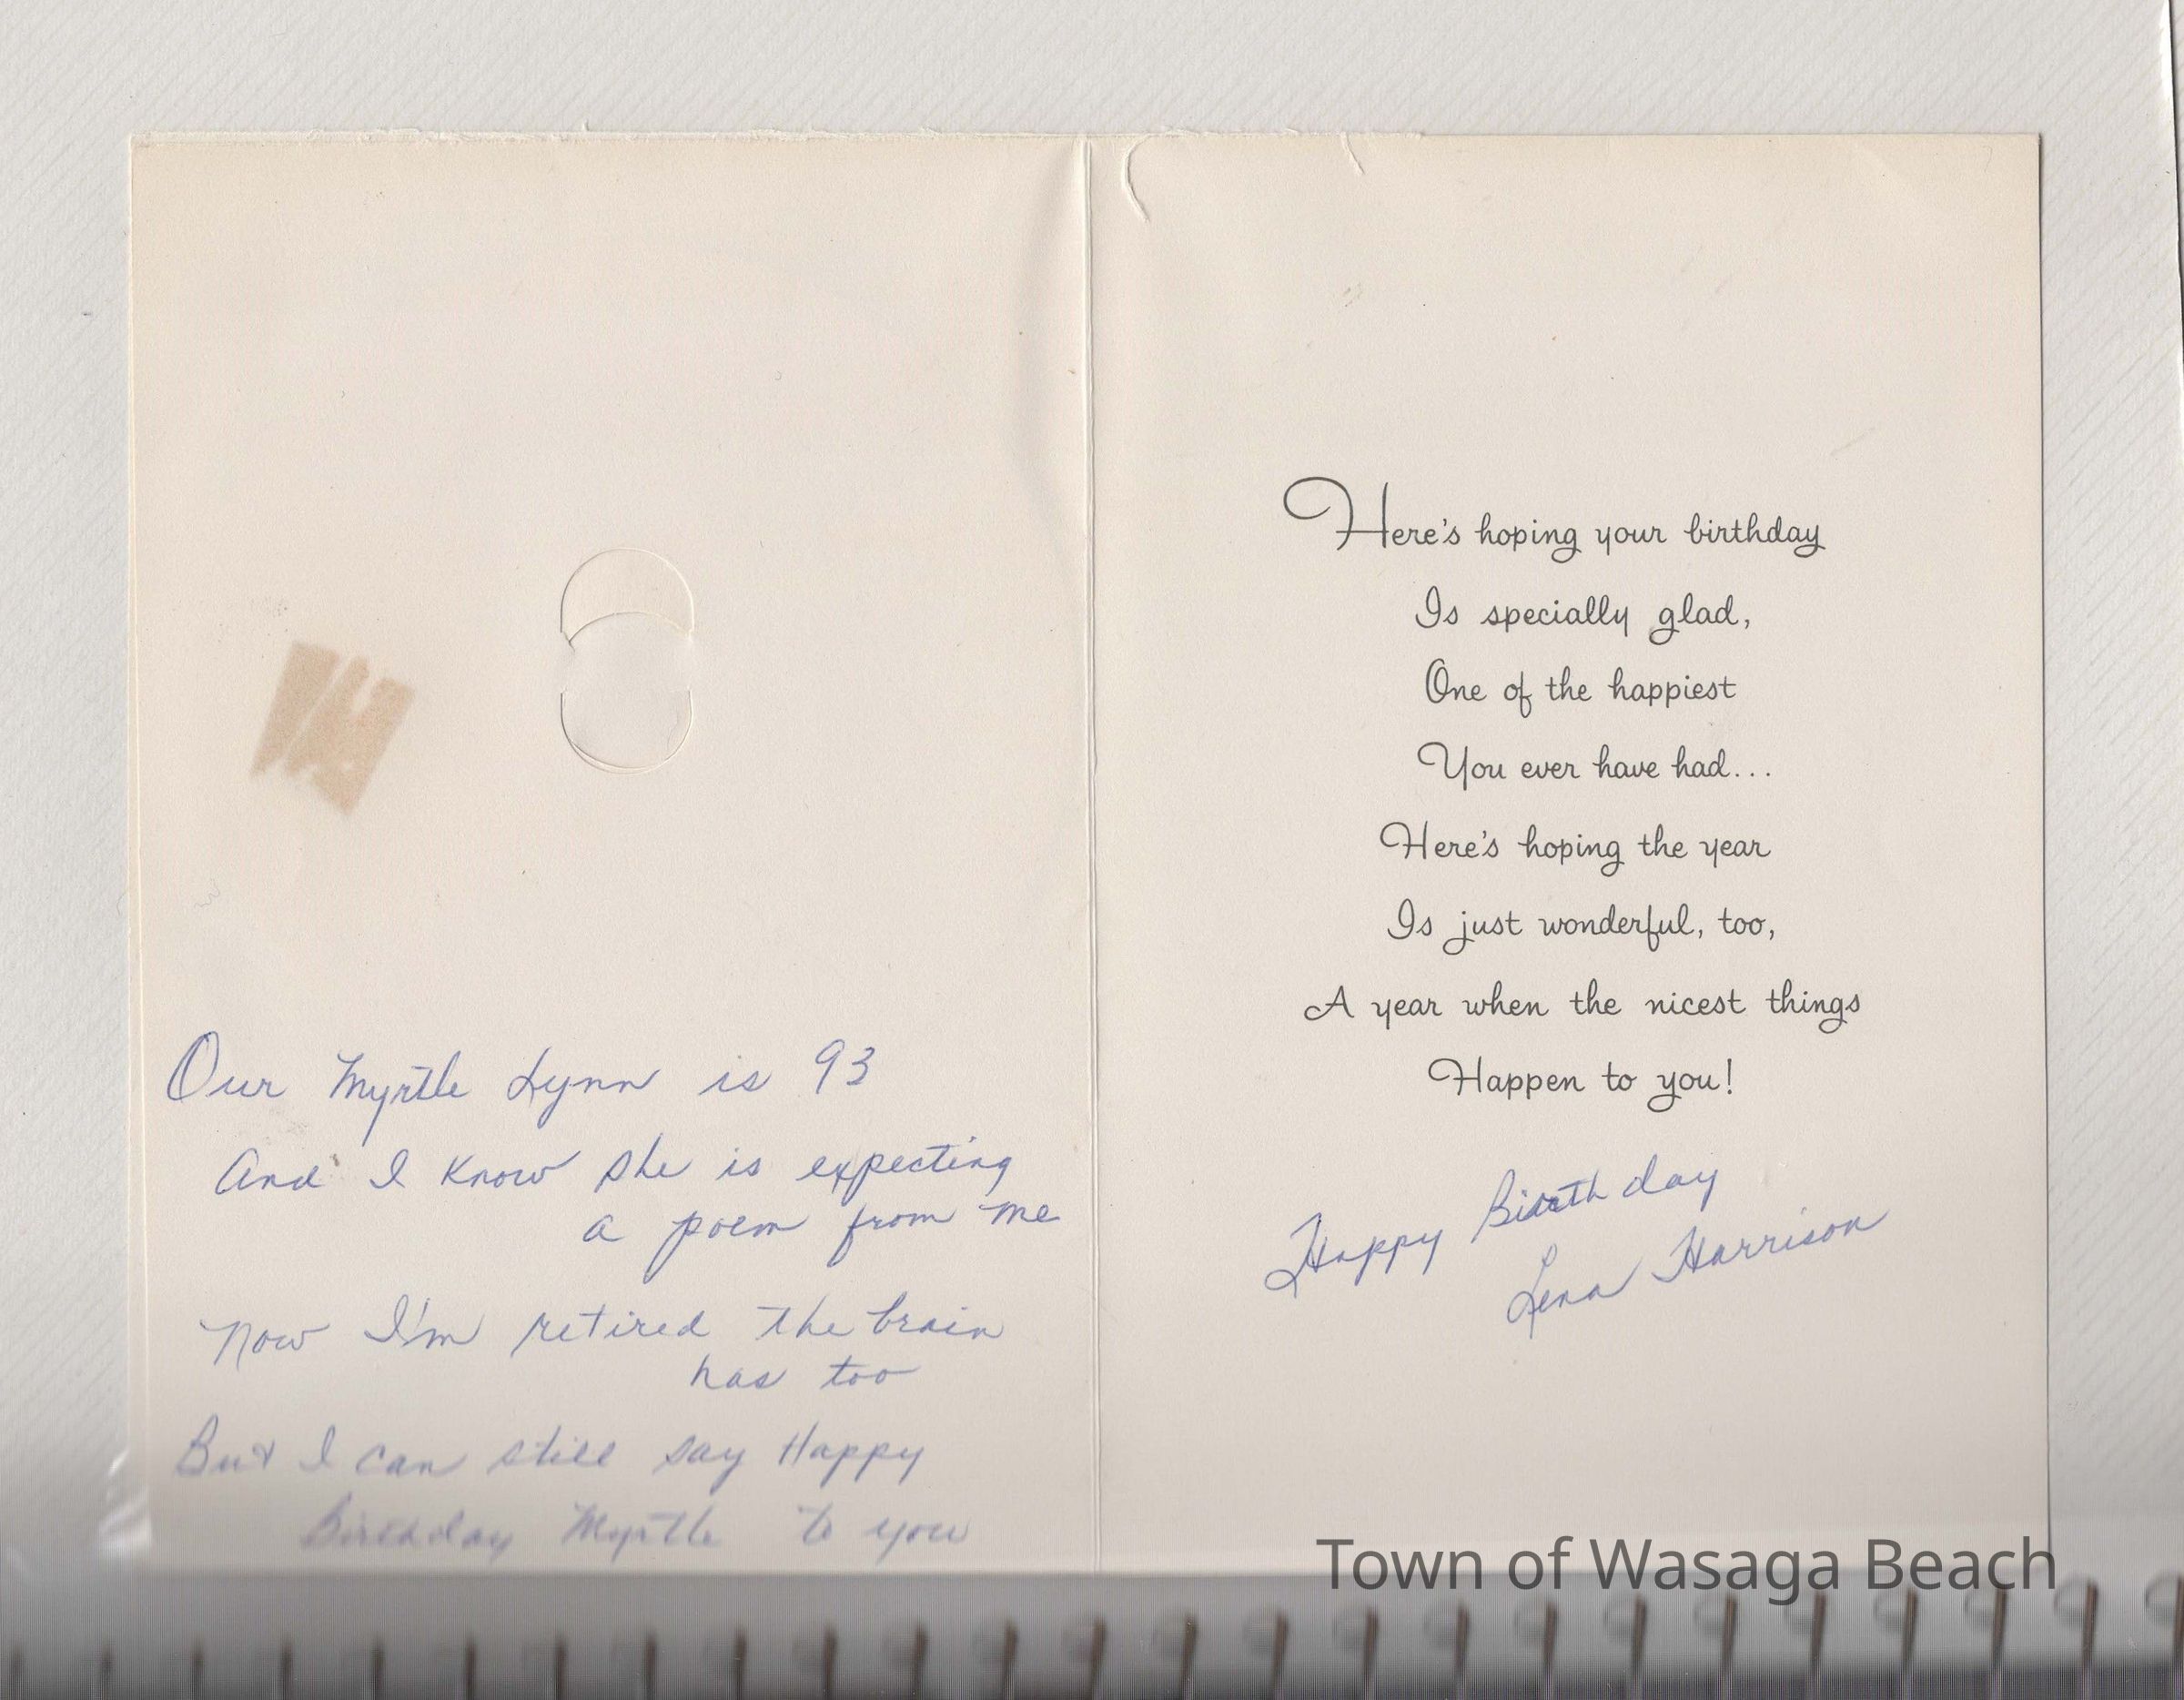 Our Myrtle Lynn is 93
And I know she is expecting
a poem from me
Now I'm retired the brain
has too
But I can still say Happy
Birthday Myrtle to you
Here's hoping your birthday
Is specially glad,
One of the happiest
You ever have had...
Here's hoping the year
Is just wonderful, too,
A year when the nicest things
Happen to you!
Happy Birthday
Lena Harrison
Town of Wasaga Beach